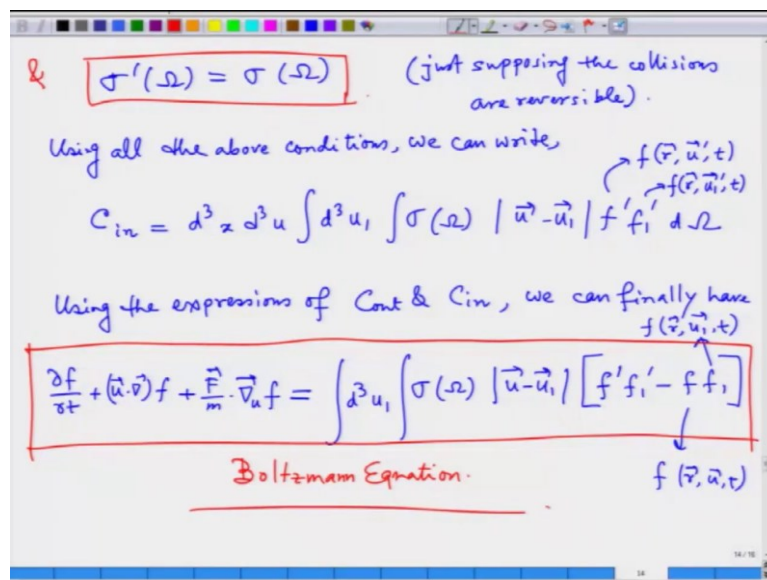 & σ'(Ω) = σ(Ω) (just supposing the collisions
are reversible).
Using all the above conditions, we can write,
f(r⃗, u⃗', t)
f(r⃗, u⃗₁', t)
C_in = d³x d³u ∫ d³u₁ ∫ σ(Ω) |u⃗ - u⃗₁| f' f₁' dΩ
Using the expressions of Cout & Cin, we can finally have
f(r⃗, u⃗₁, t)
∂f/∂t + (u⃗·∇⃗)f + F⃗/m · ∇⃗ᵤ f = ∫ d³u₁ ∫ σ(Ω) |u⃗ - u⃗₁| [f' f₁' - f f₁]
Boltzmann Equation.
f(r⃗, u⃗, t)
14/16
14